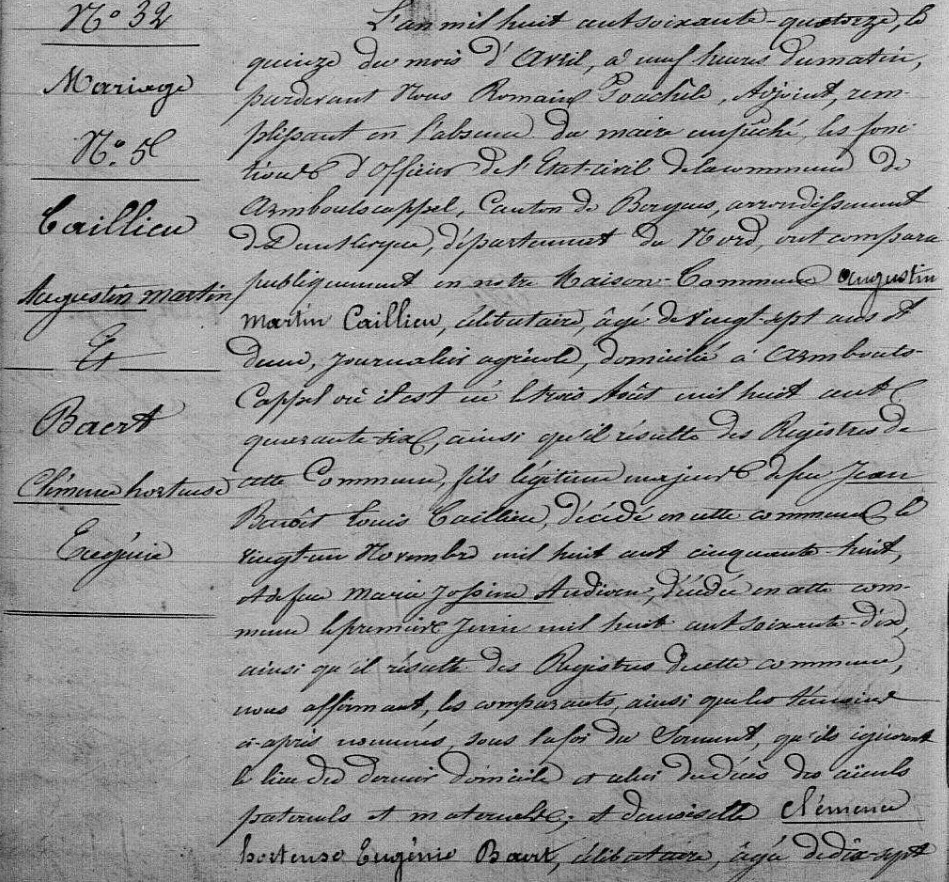 N° 32
Mariage
N°. 5
Caillieu
Augustin Martin
Et
Baert
Clémence hortense
Eugénie
L'an mil huit cent soixante-quatorze, le
quinze du mois d'Avril, à neuf heures du matin,
pardevant Nous Romain Joachile, Adjoint, rem-
plissant en l'absence du maire empêché, les fonc-
tions d'Officier de l'Etat-civil de la commune de
Armboutscappel, Canton de Bergues, arrondissement
de Dunkerque, département du Nord, ont comparu
publiquement en notre Maison-Commune Augustin
Martin Caillieu, célibataire, âgé de vingt-sept ans et
demi, journalier agricole, domicilié à Armbouts-
Cappel où il est né le trois Août mil huit cent
quarante-six, ainsi qu'il résulte des Registres de
cette Commune, fils légitime majeur de feu Jean
Benoît Louis Caillieu, décédé en cette commune le
vingt-un Novembre mil huit cent cinquante-huit,
et de feue Marie Jossine Andiren, décédée en cette com-
mune le premier Juin mil huit cent soixante-dix,
ainsi qu'il résulte des Registres de cette commune,
nous affirmant, les comparants, ainsi que les témoins
ci-après nommés, sous la foi du Serment, qu'ils ignorent
le lieu du dernier domicile et celui du décès des aïeuls
paternels et maternels; et demoiselle Clémence
hortense Eugénie Baert, célibataire, âgée de dix-sept